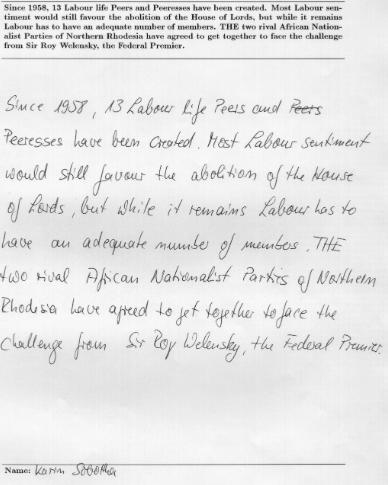 Since 1958, 13 Labour life Peers and Peeresses have been created. Most Labour sen-
timent would still favour the abolition of the House of Lords, but while it remains
Labour has to have an adequate number of members. THE two rival African Nation-
alist Parties of Northern Rhodesia have agreed to get together to face the challenge
from Sir Roy Welensky, the Federal Premier.
Since 1958, 13 Labour life Peers and Peers
Peeresses have been created. Most Labour sentiment
would still favour the abolition of the House
of Lords, but while it remains Labour has to
have an adequate number of members. THE
two rival African Nationalist Parties of Northern
Rhodesia have agreed to get together to face the
challenge from Sir Roy Welensky, the Federal Premier.
Name: Karin Sobotha